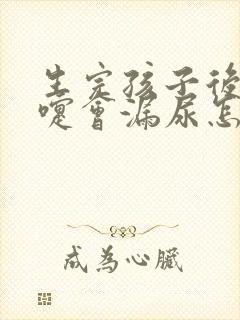 生完孩子後
嚏會漏尿怎
成為心臟